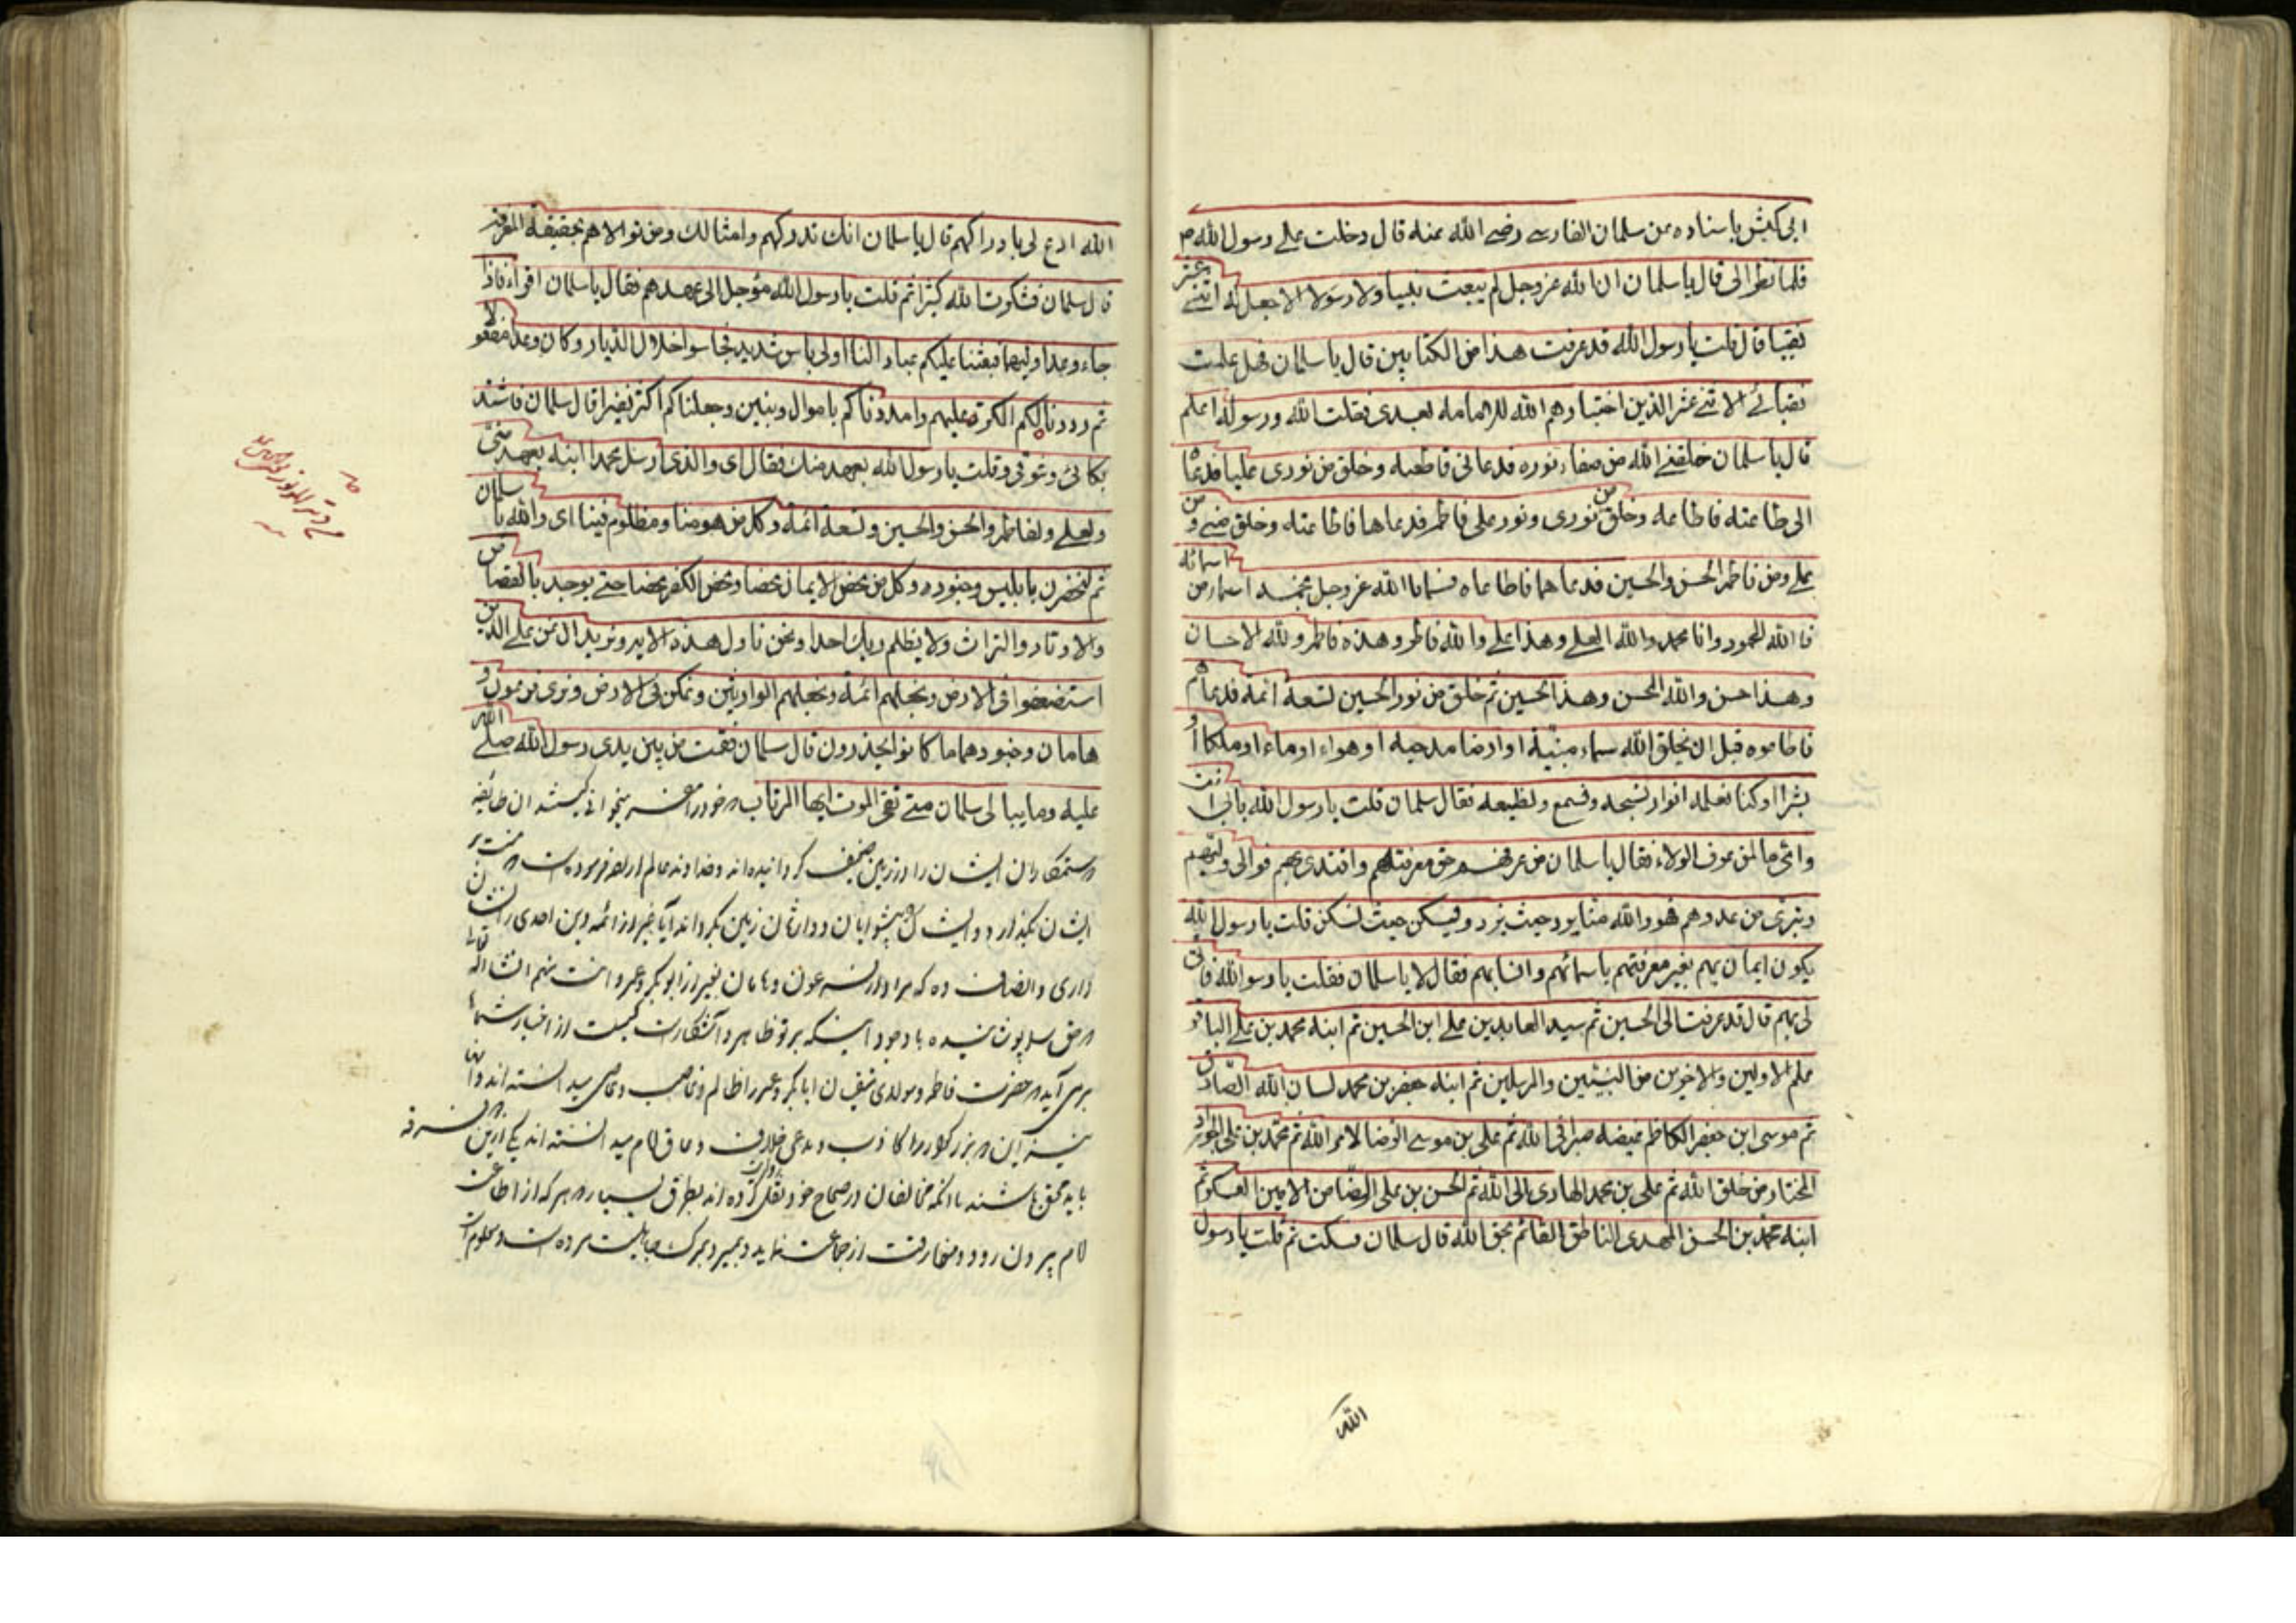 ابی کبش باسناده عن سلمان الفارسے رضے الله عنه قال دخلت علے رسول الله ص
فلما نظر الی قال یا سلمان ان الله عز وجل لم یبعث نبیا ولا رسولا الا جعل له اثنے عشر
نقیبا قال قلت یا رسول الله قد عرفت هذا من الکتابین قال یا سلمان فهل علمت
نقبائے الاثنے عشر الذین اختارهم الله للامامة بعدی فقلت الله ورسوله اعلم
قال یا سلمان خلقنے الله من صفاء نوره فدعانی فاطعته وخلق من نوری علیا فدعا
الی طاعته فاطاعه وخلق من نوری ونور علی فاطمه فدعاها فاطاعته وخلق منے و من
علے ومن فاطمه الحسن والحسین فدعاهما فاطاعاه فسمانا الله عز وجل بخمسه اسماء من اسمائه
فالله المحمود وانا محمد والله العلے وهذا علے والله فاطر وهذه فاطمه ولله الاحسان
وهذا حسن والله المحسن وهذا الحسین ثم خلق من نور الحسین تسعة ائمة فدعاهم
فاطاعوه قبل ان یخلق الله سماء مبنیة او ارضا مدحیه او هواء او ماء او ملکا او
بشرا وکنا بعلمه انوار نسبحه ونسمع ونطیعه فقال سلمان قلت یا رسول الله بابی انت
وامی ما لمن عرف الولاء فقال یا سلمان من عرفهم حق معرفتهم واقتدی بهم فوالی ولیهم
وتبری من عدوهم فهو والله منا یرد حیث نرد ویسکن حیث نسکن قلت یا رسول الله
یکون ایمان بهم بغیر معرفتهم باسمائهم وانسابهم فقال لا یا سلمان فقلت یا رسول الله فانی
لی بهم قال قد عرفت الی الحسین ثم سید العابدین علے ابن الحسین ثم ابنه محمد بن علے الباقر
علم الاولین والاخرین من النبیین والمرسلین ثم ابنه جعفر بن محمد لسان الله الصادق
ثم موسی ابن جعفر الکاظم غیضه صبرا فی الله ثم علی بن موسے الرضا لامر الله ثم محمد بن علی الجواد
المختار من خلق الله ثم علی بن محمد الهادی الی الله ثم الحسن بن علی الصامن الامین العسکری ثم
ابنه محمد بن الحسن المهدی الناطق القائم بحق الله قال سلمان فسکت ثم قلت یا رسول
الله
الله ادع لی بادراکهم قال یا سلمان انک تدرکهم وامثالک ومن توالاهم بحقیقة المعرفة
قال سلمان فشکرت الله کثیرا ثم قلت یا رسول الله مؤجل الی عهدهم فقال یا سلمان اقراء فاذا
جاء وعد اولیهما بعثنا علیکم عبادا لنا اولی باس شدید فجاسوا خلال الدیار وکان وعدا مفعولا
ثم رددنا لکم الکرة علیهم وامددناکم باموال وبنین وجعلناکم اکثر نفیرا قال سلمان فاشتد
بکائی وشوقی وقلت یا رسول الله بعهد منک فقال ای والذی ارسل محمدا انه بعهد منی
ولعلے ولفاطمه والحسن والحسین وتسعة ائمة وکل من هو منا ومظلوم فینا ای والله یا سلمان
ثم لیحضرن ابلیس وجنوده وکل من محض الایمان محضا ومحض الکفر محضا حتے یوخذ بالقصاص
والاوتار والتراث ولا یظلم ربک احدا ونحن تاویل هذه الایه ونرید ان نمن علے الذین
استضعفوا فی الارض ونجعلهم ائمة ونجعلهم الوارثین ونمکن فی الارض ونری فرعون و
هامان وجنودهما ما کانوا یحذرون قال سلمان فقمت من بین یدی رسول الله صلے الله
علیه وما یبالی سلمان متے لقی الموت ایها المرتاب خود را مفسر میخوانی کیستند ان طایفه
ستمکاران ایشان را در زمین ضعیف کردانیده اند وخداوند عالم فرموده است
ایشان بگذارد وایشان پیشوایان ووارثان زمین بکرداند آیا غیر از ائمه دین احدی را نشان
داری وانصاف ده که مراد از فرعون وهامان بغیر از ابوبکر وعمر
حق بر تو پوشیده با وجود اینکه بر تو ظاهر و آشکار است از اخبار شما
برمی آید حضرت فاطمه ابابکر وعمر را ظالم وغاصب وعاصی میدانسته اند
این بزرگوار را کاذب ومدعی خلافت وعاق امام میدانسته اند یکی ازین
باید محق باشند با انکه مخالفان در صحاح خود نقل کرده اند بطرق بسیار هر که از اطاعت
امام بیرون رود ومفارقت از جماعت نماید وبمیرد بمرک جاهلیت مرده است ومعلوم است